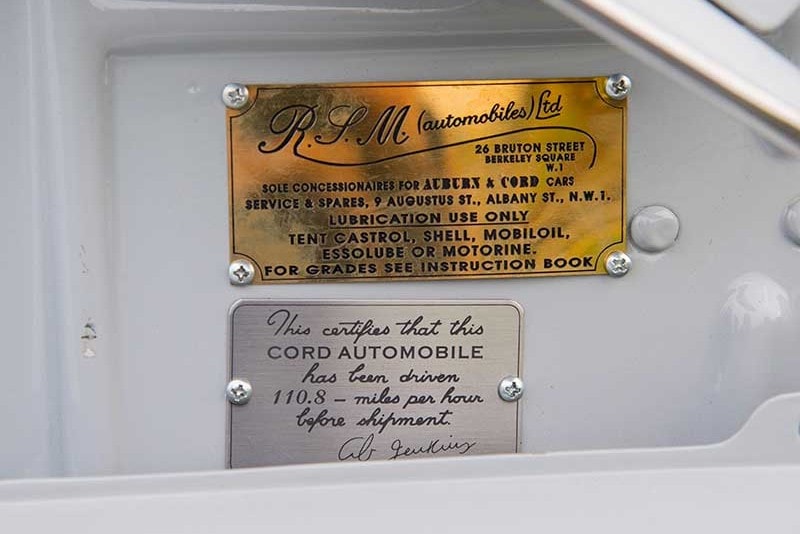 R.S.M. (automobiles) Ltd
26 BRUTON STREET
BERKELEY SQUARE
W.1
SOLE CONCESSIONAIRES FOR AUBURN & CORD CARS
SERVICE & SPARES, 9 AUGUSTUS ST., ALBANY ST., N.W.1.
LUBRICATION USE ONLY
TENT CASTROL, SHELL, MOBILOIL,
ESSOLUBE OR MOTORINE.
FOR GRADES SEE INSTRUCTION BOOK
This certifies that this
CORD AUTOMOBILE
has been driven
110.8 – miles per hour
before shipment.
Ab Jenkins